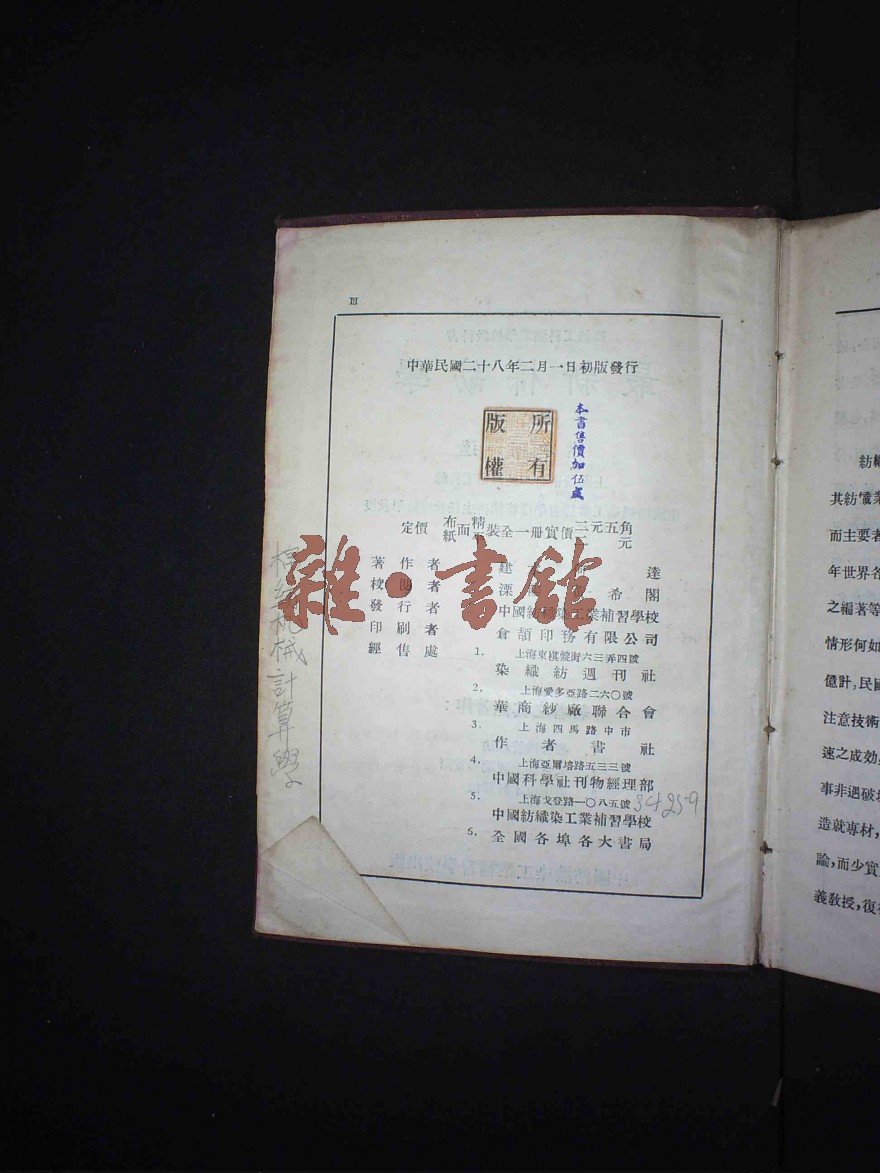 III
中華民國二十八年二月一日初版發行
版權所有
本書售價加伍成
定價 布面精裝全一冊實價三元五角
紙 二元
著作者 建 達
校閱者 溧 希閣
發行者 中國紡織染工業補習學校
印刷者 倉頡印務有限公司
經售處 1. 上海東棋盤街六三弄四號
染織紡週刊社
2. 上海愛多亞路二六〇號
華商紗廠聯合會
3. 上海四馬路中市
作者書社
4. 上海亞爾培路五三三號
中國科學社刊物經理部
5. 上海戈登路一〇八五號
中國紡織染工業補習學校
6. 全國各埠各大書局
機械計算學
雜·書館
紡織
其紡織業
而主要者
年世界各
之編著等
情形何如
億計,民國
注意技術
速之成効
事非遇破壞
造就專材,
論,而少實
義敎授,復